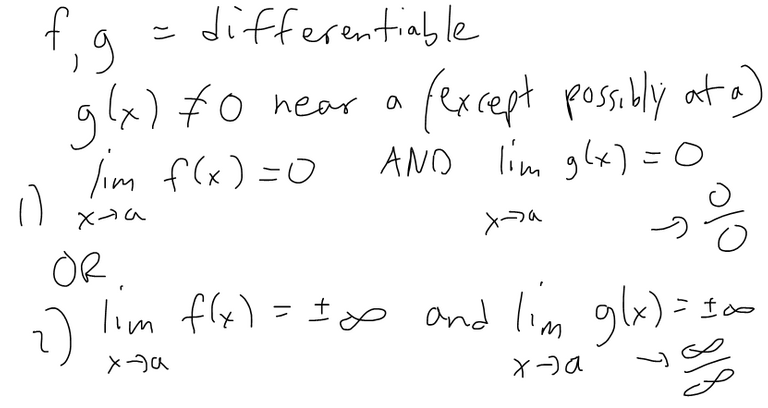 f, g = differentiable
g(x) ≠ 0 near a (except possibly at a)
1) lim x→a f(x) = 0 AND lim x→a g(x) = 0 → 0/0
OR
2) lim x→a f(x) = ±∞ and lim x→a g(x) = ±∞ → ∞/∞